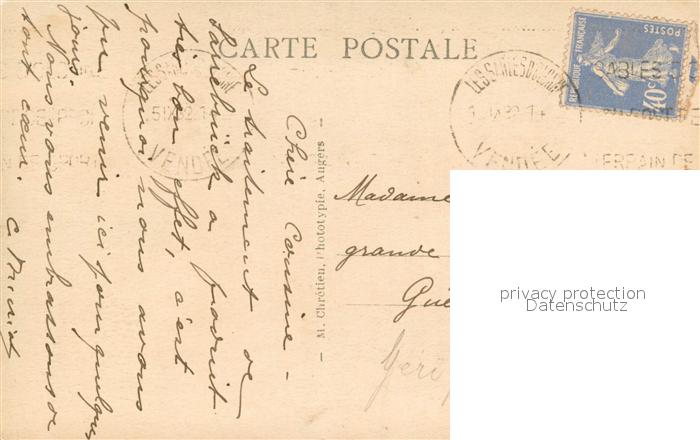 CARTE POSTALE
REPUBLIQUE FRANÇAISE
POSTES
40c
LES SABLES D'OLONNE
VENDÉE
LES SABLES D'OLONNE
VENDÉE
SABLES
Chère Cousine -
Le traitement de
Sarrebrück a produit
très bon effet, c'est
pourquoi nous avons
pu venir ici pour quelques
jours.
Nous vous embrassons de
tout cœur.
M. Chrétien, Phototypie, Angers
Madame
grande
Gué
privacy protection
Datenschutz